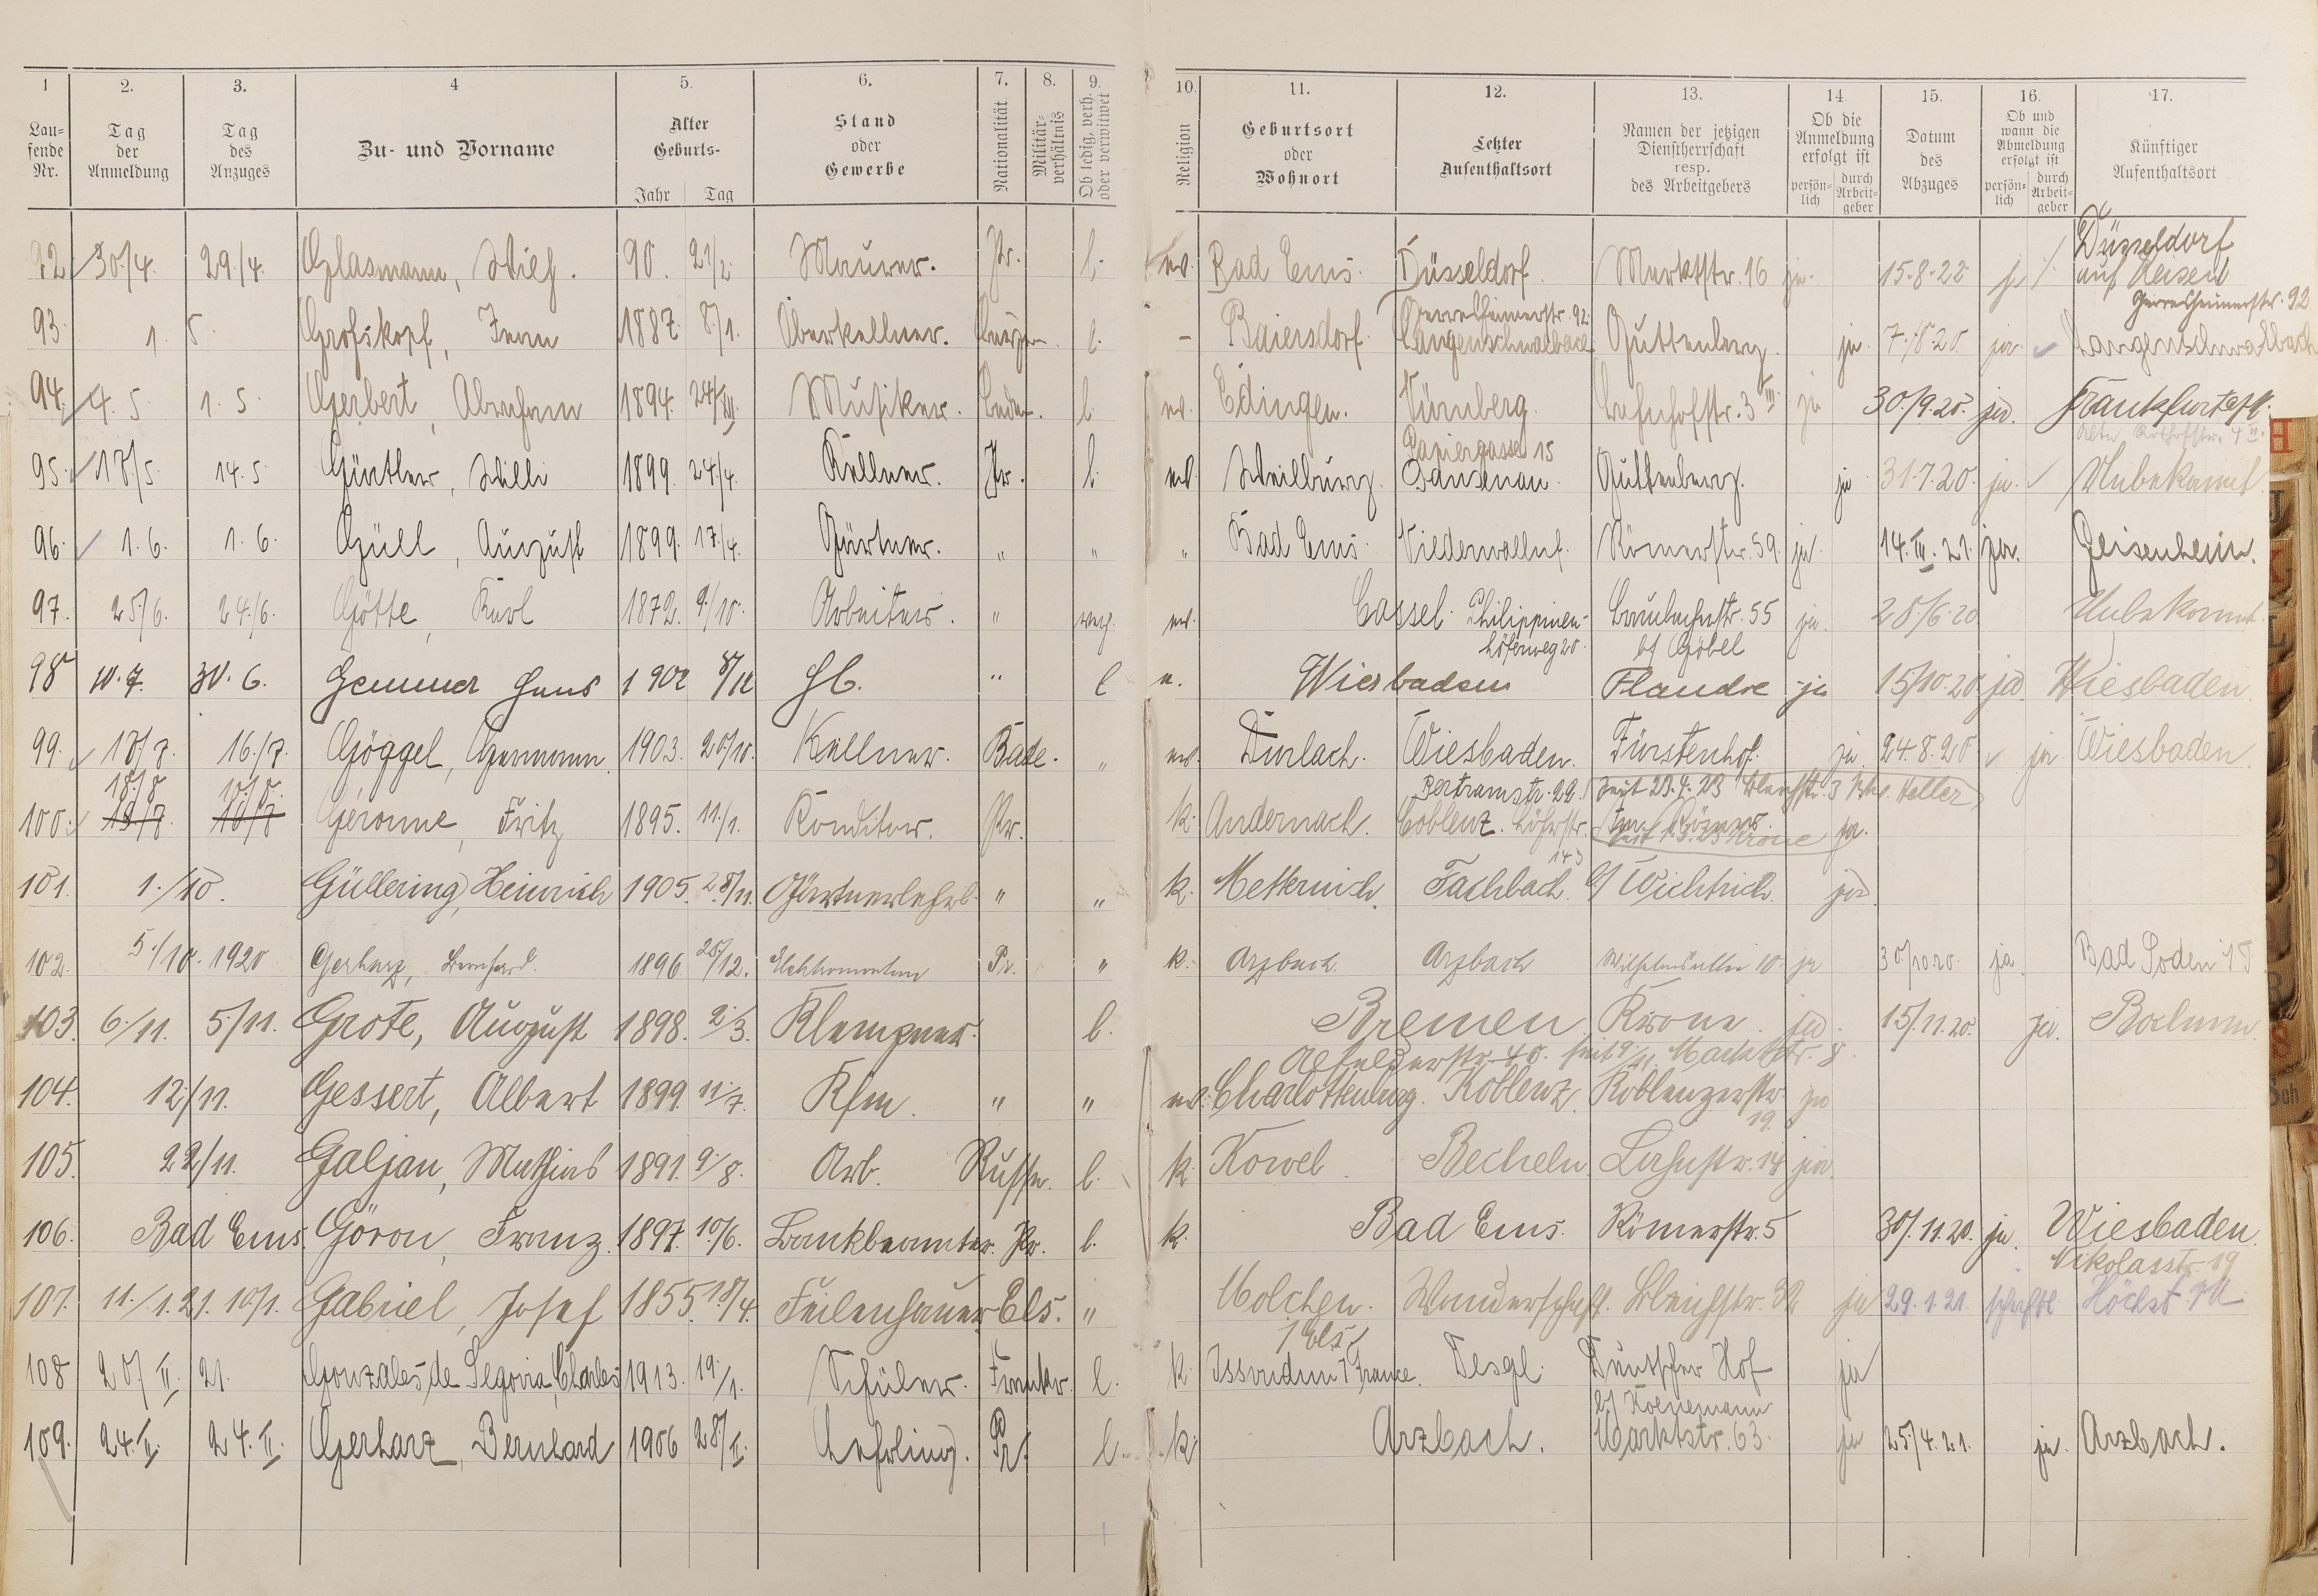 1 2. 3. 4 5. 6. 7. 8. 9. 10. 11. 12. 13. 14. 15. 16. 17.
Lau-
fende
Nr.
Tag
der
Anmeldung
Tag
des
Anzuges
Zu- und Vorname
Alter
Geburts-
Jahr Tag
Stand
oder
Gewerbe
Nationalität
Militär-
verhältnis
Ob ledig, verh.
oder verwitwet
Religion
Geburtsort
oder
Wohnort
Letzter
Aufenthaltsort
Namen der jetzigen
Dienstherrschaft
resp.
des Arbeitgebers
Ob die
Anmeldung
erfolgt ist
persön-
lich
durch
Arbeit-
geber
Datum
des
Abzuges
Ob und
wann die
Abmeldung
erfolgt ist
persön-
lich
durch
Arbeit-
geber
Künftiger
Aufenthaltsort
92 30./4. 29./4. Glasmann, 90. 21/2. Maurer. Pr. l. ev. Bad Ems. Düsseldorf. Marktstr. 16 ja. 15.8.22 ja Düsseldorf
auf Reisen
Gerresheimerstr. 92
93. 1. 5. Großkopf, 1887. 8/1. Oberkellner. l. - Baiersdorf. Langenschwalbach Guttenberg. ja. 7./8.20. ja. Langenschwalbach
94. 4. 5. 1. 5. Gerbert, Abraham 1894. 24/XII. Musiker. Baden. l. ev. Edingen. Nürnberg. Bahnhofstr. 3 III. ja 30./9.20. ja. Frankfurt a/M.
Papiergasse 15
95. 17/5. 14. 5. Güntler, Willi 1899. 24./4. Kellner. Pr. l. ev. Weilburg. Guttenberg. ja 31.7.20. ja. Unbekannt
96. 1. 6. 1. 6. Güll, August 1899. 17./4. Gärtner. " " " Bad Ems. Niederwalluf. Römerstr. 59. ja. 14. III. 21. ja. Geisenheim.
97. 25./6. 24./6. Götte, Karl 1872. 9./10. Arbeiter. " verh. ev. Cassel. Philippinen-
höferweg 20. 55 ja. 28/6.20 Unbekannt.
b/ Göbel
98 10. 7. 30. 6. Gemmer Hans 1902 8/12 " l e. Wiesbaden Flandre ja 15/10.20. ja Wiesbaden.
99. 18/7. 16./7. Göggel, Hermann. 1903. 20./10. Kellner. Bade. " ev. Durlach. Wiesbaden. Fürstenhof. ja. 24.8.20 ja. Wiesbaden.
18./8 10./8. Bertramstr. 29. Seit 23.4.23 3 Keller
100. 19/7. 16/7 Geronne, Fritz 1895. 11/1. Konditor. Pr. k. Andernach. Coblenz. Löhrstr. ja.
143
101. 1./10. Güllering, Heinrich 1905. 28/11. Gärtnerlehrl. " " k. Metternich. Fachbach. b/ Wichtrich. ja.
102. 5./10. 1920 Gerharz, Bernhard. 1896 28/12. Elektromonteur Pr. " k. Arzbach. Arzbach Wilhelmsallee 10. ja 30/10 20. ja. Bad Soden i/T
103. 6./11. 5/11. Grote, August 1898. 2./3. Klempner. l. Bremen. Krone. ja. 15/11.20. ja. Bochum.
seit 9/11. Marktstr. 8.
104. 12./11. Gessert, Albert 1899. 11./7. Kfm. " " ev. Charlottenburg. Koblenz. Koblenzerstr. ja
19.
105. 22/11. Galjan, Mathias 1891. 9./8. Arb. Russe. l. k. Kowel. Becheln. Lahnstr. 14 ja.
106. Bad Ems. Göron, Franz. 1897. 10/6. Bankbeamter. Pr. l. k. Bad Ems. Römerstr. 5 30/.11.20. ja. Wiesbaden.
Nikolasstr 19
107. 11./1.21. 10./1. Gabriel, Josef 1855. 18/4. Feilenhauer Els. " Molchen. Wanderschaft. Bleichstr. 32 ja 29.1.21. schriftl. Höchst a/M.
i/Els.
108 20/ II. 21. Gonzales de Segovia, Charles 1913. 19./1. Schüler. Frankr. l. k. Issoudun i/France. Desgl. Deutscher Hof ja
b/ Koenemann
109. 24. II. 24. II. Gerharz, Bernhard 1906 28/II. Lehrling. Pr. l. k. Arzbach. Marktstr. 63. ja 25/4.21. ja. Arzbach.